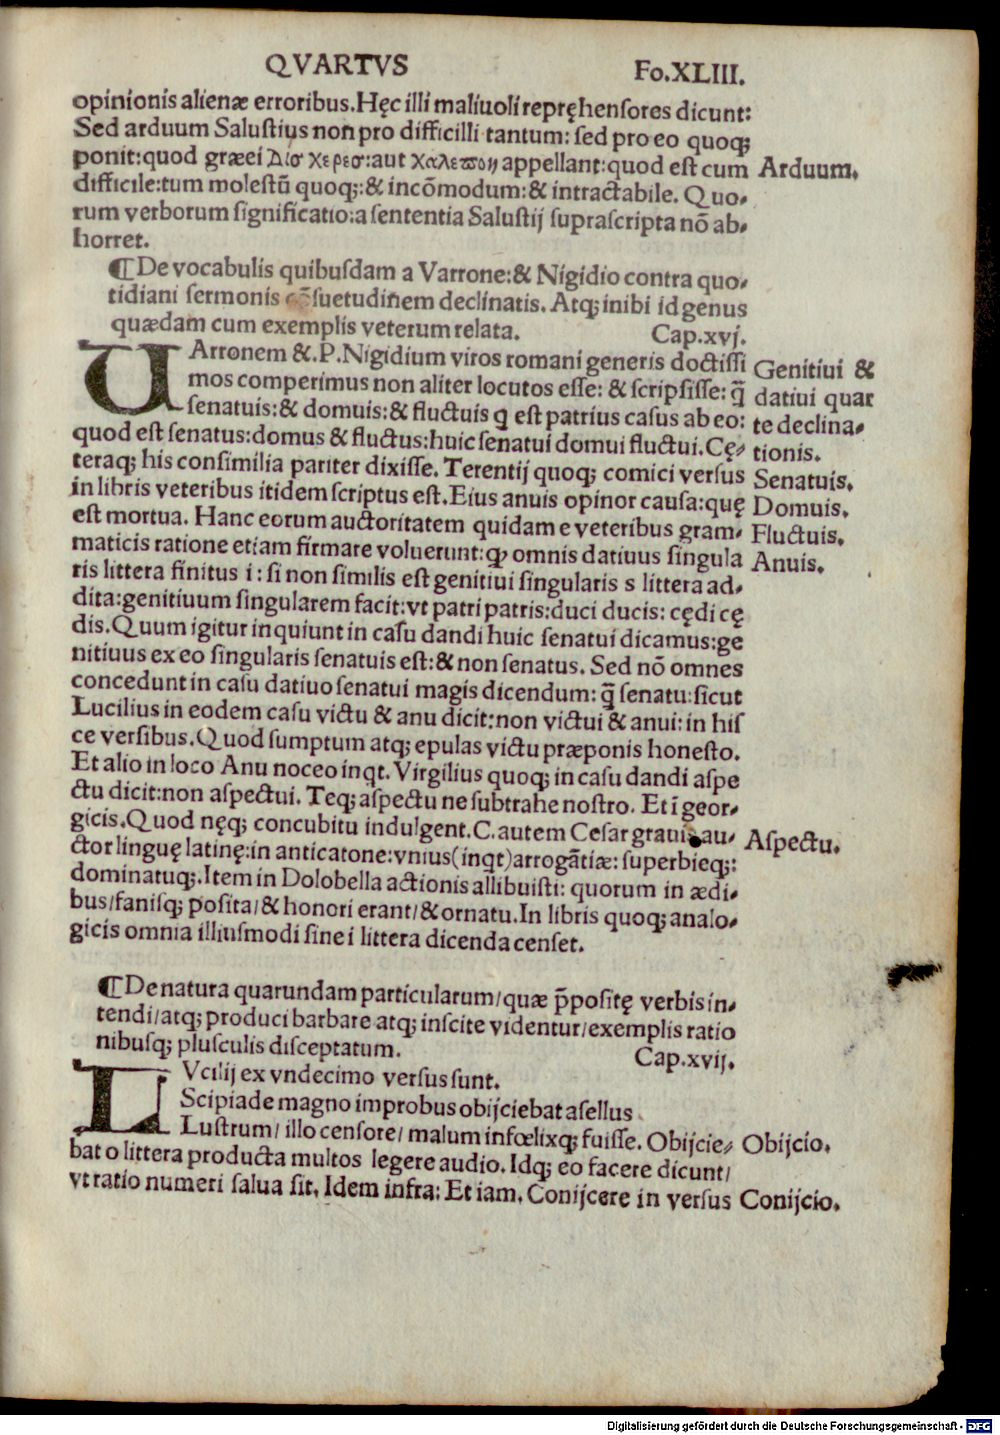 QVARTVS
Fo.XLIII.
opinionis alienæ erroribus.Hęc illi maliuoli repręhensores dicunt:
Sed arduum Salustiųs non pro difficilli tantum: sed pro eo quoq;
ponit:quod græei Δισ χερεσ:aut χαλεπον appellant:quod est cum
Arduum.
difficile:tum molestũ quoq;:& incõmodum:& intractabile. Quo-
rum verborum significatio:a sententia Salustij suprascripta nõ ab-
horret.
¶De vocabulis quibusdam a Varrone:& Nigidio contra quo-
tidiani sermonis cõsuetudinem declinatis. Atq; inibi id genus
quædam cum exemplis veterum relata. Cap.xvj.
UArronem &.P.Nigidium viros romani generis doctissi
Genitiui &
mos comperimus non aliter locutos esse: & scripsisse: q̃
datiui quar
senatuis:& domuis:& fluctuis q̃ est patrius casus ab eo:
te declina-
quod est senatus:domus & fluctus:huic senatui domui fluctui.Cę-
tionis.
teraq; his consimilia pariter dixisse. Terentij quoq; comici versus
Senatuis.
in libris veteribus itidem scriptus est.Eius anuis opinor causa:quę
Domuis.
est mortua. Hanc eorum auctoritatem quidam e veteribus gram-
Fluctuis.
maticis ratione etiam firmare voluerunt:ꝙ omnis datiuus singula
Anuis.
ris littera finitus i: si non similis est genitiui singularis s littera ad-
dita:genitiuum singularem facit:vt patri patris:duci ducis: cędi cę
dis.Quum igitur inquiunt in casu dandi huic senatui dicamus:ge
nitiuus ex eo singularis senatuis est:& non senatus. Sed nõ omnes
concedunt in casu datiuo senatui magis dicendum: q̃ senatu:sicut
Lucilius in eodem casu victu & anu dicit:non victui & anui: in his
ce versibus.Quod sumptum atq; epulas victu præponis honesto.
Et alio in loco Anu noceo inqt. Virgilius quoq; in casu dandi aspe
ctu dicit:non aspectui. Teq; aspectu ne subtrahe nostro. Et ĩ geor-
gicis.Quod nęq; concubitu indulgent.C. autem Cesar grauis au-
Aspectu.
ctor linguę latinę:in anticatone:vnius(inqt)arrogãtiæ: superbieq;:
dominatuq;.Item in Dolobella actionis allibuisti: quorum in ædi-
bus/fanisq; posita/& honori erant/& ornatu.In libris quoq; analo-
gicis omnia illiusmodi sine i littera dicenda censet.
¶De natura quarundam particularum/quæ p̃positę verbis in-
tendi/atq; produci barbare atq; inscite videntur/exemplis ratio
nibusq; plusculis disceptatum. Cap.xvij.
LVcilij ex vndecimo versus sunt.
Scipiade magno improbus obijciebat asellus
Lustrum/ illo censore/ malum infœlixq; fuisse. Obijcie-
Obijcio.
bat o littera producta multos legere audio. Idq; eo facere dicunt/
vt ratio numeri salua sit. Idem infra: Et iam. Conijcere in versus
Conijcio.
Digitalisierung gefördert durch die Deutsche Forschungsgemeinschaft - DFG